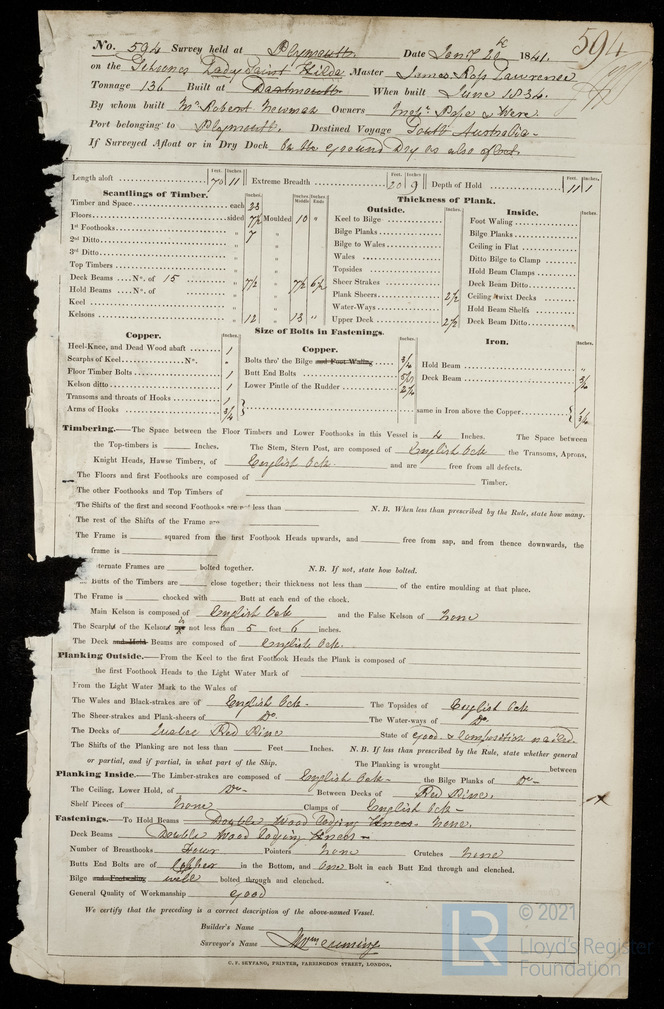 No. 594 Survey held at Plymouth. Date Jan.y 20th 1841. 594
on the Schooner Lady Saint Kilda Master James Ross Lawrence
Tonnage 136 Built at Dartmouth When built June 1834.
By whom built Mr Robert Newman Owners Messrs Pope & Were.
Port belonging to Plymouth. Destined Voyage South Australia -
If Surveyed Afloat or in Dry Dock On the ground Dry as also afloat.
Length aloft Feet. 70 Inches 11 Extreme Breadth Feet. 20 Inches 9 Depth of Hold Feet. 11 Inches. 1
Scantlings of Timber. Inches. Inches Middle Inches Ends
Timber and Space each 23
Floors sided 7½ Moulded 10 "
1st Foothooks " 7 "
2nd Ditto " "
3rd Ditto " "
Top Timbers " "
Deck Beams No. of 15 " 7½ " 7½ 6½
Hold Beams No. of " "
Keel " "
Kelsons " 12 " 13 "
Thickness of Plank.
Outside. Inches.
Keel to Bilge
Bilge Planks
Bilge to Wales
Wales
Topsides
Sheer Strakes
Plank Sheers 2½
Water-Ways
Upper Deck 2½
Inside. Inches.
Foot Waling
Bilge Planks
Ceiling in Flat
Ditto Bilge to Clamp
Hold Beam Clamps
Deck Beam Ditto
Ceiling 'twixt Decks
Hold Beam Shelfs
Deck Beam Ditto
Size of Bolts in Fastenings.
Copper. Inches.
Heel-Knee, and Dead Wood abaft 1
Scarphs of Keel No. "
Floor Timber Bolts 1
Kelson ditto 1
Transoms and throats of Hooks 1
Arms of Hooks ¾
Copper. Inches.
Bolts thro' the Bilge and Foot Waling
Butt End Bolts
Lower Pintle of the Rudder
Iron. Inches.
Hold Beam "
Deck Beam
same in Iron above the Copper
Timbering.—The Space between the Floor Timbers and Lower Foothooks in this Vessel is Inches. The Space between
the Top-timbers is Inches. The Stem, Stern Post, are composed of English Oak the Transoms, Aprons,
Knight Heads, Hawse Timbers, of English Oak. and are free from all defects.
The Floors and first Foothooks are composed of Timber.
The other Foothooks and Top Timbers of
The Shifts of the first and second Foothooks are not less than N. B. When less than prescribed by the Rule, state how many.
The rest of the Shifts of the Frame are
The Frame is squared from the first Foothook Heads upwards, and free from sap, and from thence downwards, the
frame is
ternate Frames are bolted together. N.B. If not, state how bolted.
Butts of the Timbers are close together; their thickness not less than of the entire moulding at that place.
The Frame is chocked with Butt at each end of the chock.
Main Kelson is composed of English Oak and the False Kelson of None
The Scarphs of the Kelsons is not less than 5 feet 6 inches.
The Deck and Hold Beams are composed of English Oak.
Planking Outside.—From the Keel to the first Foothook Heads the Plank is composed of
the first Foothook Heads to the Light Water Mark of
From the Light Water Mark to the Wales of
The Wales and Black-strakes are of English Oak. The Topsides of English Oak
The Sheer-strakes and Plank-sheers of Do. The Water-ways of Do.
The Decks of Quebec Red Pine State of Good & Composition nailed
The Shifts of the Planking are not less than Feet Inches. N.B. If less than prescribed by the Rule, state whether general
or partial, and if partial, in what part of the Ship. The Planking is wrought between
Planking Inside.—The Limber-strakes are composed of English Oak - the Bilge Planks of Do -
The Ceiling, Lower Hold, of Do - Between Decks of Red Pine.
Shelf Pieces of None Clamps of English Oak -
Fastenings.—To Hold Beams Double Wood Lodging Knees - None.
Deck Beams Double Wood Lodging Knees -
Number of Breasthooks Four Pointers None Crutches None
Butts End Bolts are of Copper in the Bottom, and One Bolt in each Butt End through and clenched.
Bilge and Footwaling well bolted through and clenched.
General Quality of Workmanship Good
We certify that the preceding is a correct description of the above-named Vessel.
Builder's Name
Surveyor's Name
C. F. SEYFANG, PRINTER, FARRINGDON STREET, LONDON.
LR
© 2021
Lloyd's Register
Foundation